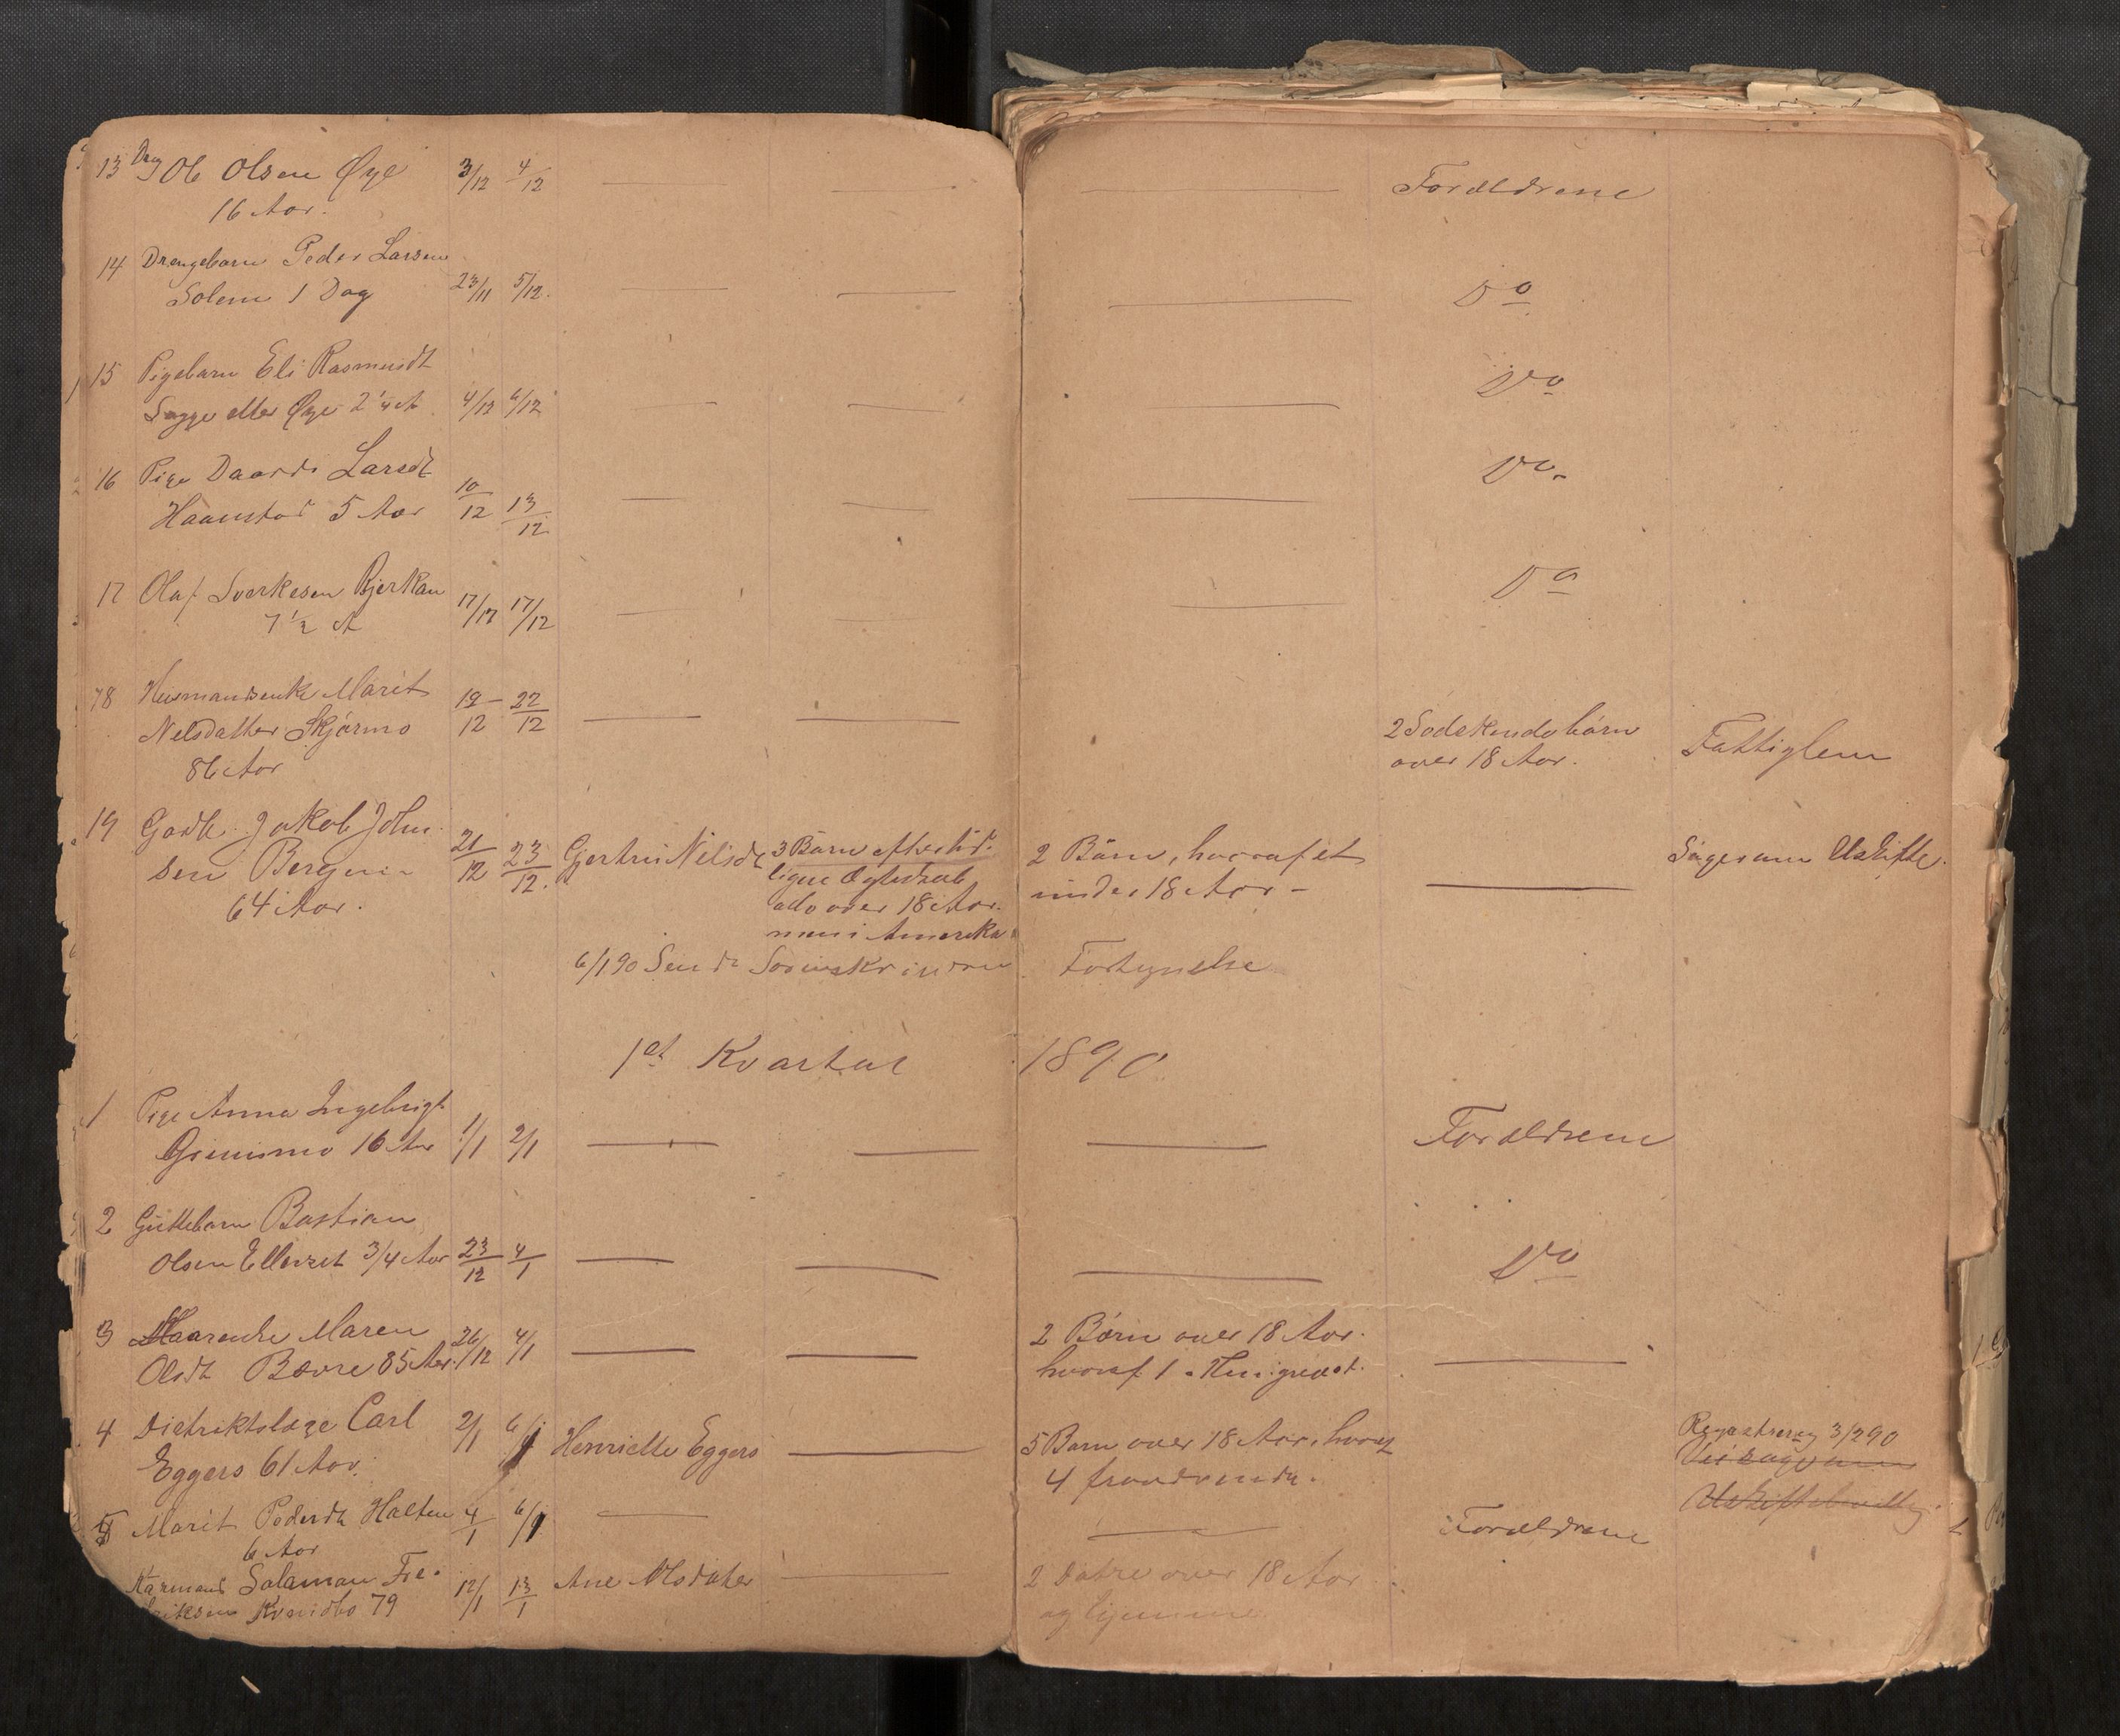 13 Drg Ole Olsen Øye 3/12 4/12 — — — Forældrene
16 Aar.
14 Drengebarn Peder Larsen
Solem 1 Dag 23/11 5/12. — — — Do
15 Pigebarn Eli Rasmusdt
Sogge eller Øye 2 1/4 A 4/12 6/12 — — — Do
16 Pige Daardi Larsdt
Haanstad 5 Aar 10/12 13/12 — — — Do.
17 Olaf Sverkesen Bjerkan
7 1/2 A 17/12 17/12 — — — Do
18 Husmandsenke Marit
Nelsdatter Skjørmo 19/12 22/12 — — 2 Sødskendebørn
over 18 Aar. Fattiglem
86 Aar
19 Gaardb. Jakob John
sen Bergum 21/12 23/12. Gjertru Nilsdt
64 Aar.
3 Børn
over 18 Aar.
men i Amerika
2 Børn, hvoraf et
under 18 Aar —
— Søges om Uskifte.
6/1 90 Sendt Sorenskriveren Fortegnelse
1st Kvartal 1890
1 Pige Anna Ingebrigt
Grimsmo 16 Aar 1/1 2/1 — — — Forældrene
2 Guttebarn Bastian
Olsen Ellevset 3/4 Aar 23/12 4/1 — — — Do
3 Maren
Olsdt Bævre 85 Aar. 26/12 4/1 — — 2 Børn over 18 Aar.
hvoraf 1 —
4 Distriktslæge Carl
Eggers 61 Aar. 2/1 6/1 Henriette Eggers — 5 Børn over 18 Aar, hvoraf
4 fraværende.
Registrering 3/2 90
5 Marit Pedersdt Halten 4/1 6/1 — — Forældrene
6 Aar
Kaarmand Salaman Fre-
driksen Kvendbo 79 12/1 13/1 Ane Olsdatter — 2 Døtre over 18 Aar
og hjemme